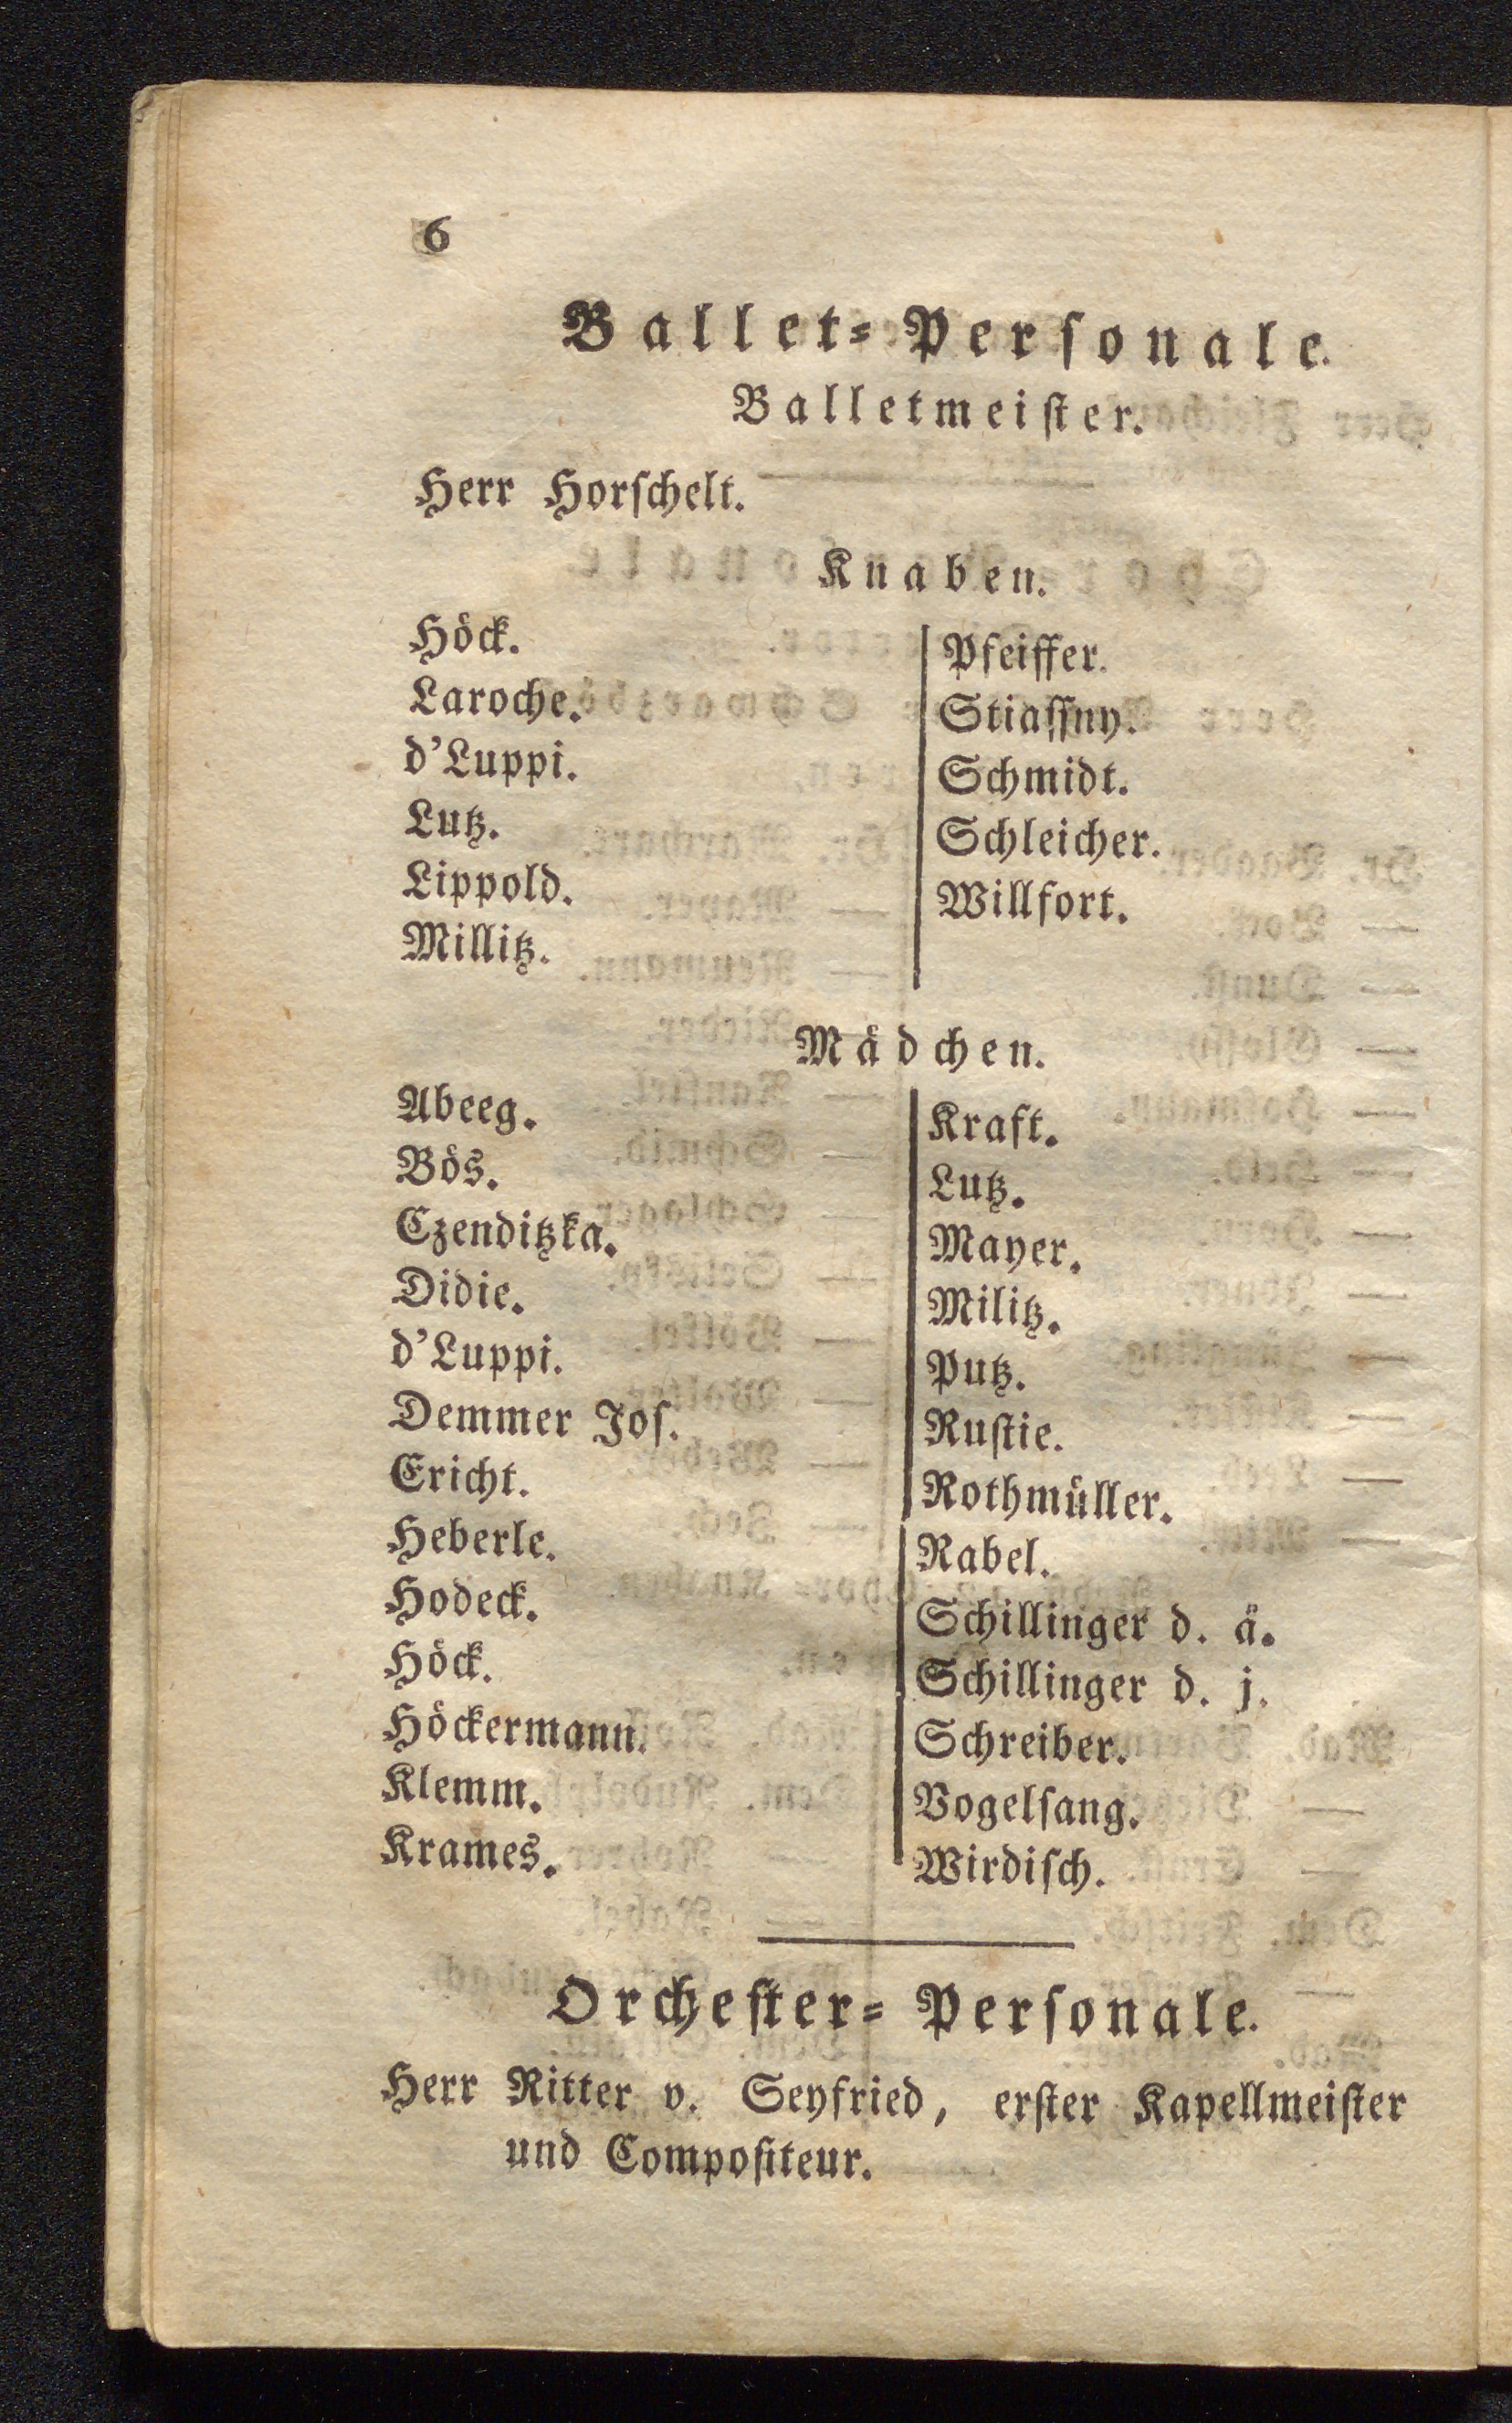 6
Ballet-Personale.
Balletmeister.
Herr Horschelt.
Knaben.
Höck.
Laroche.
d'Luppi.
Lutz.
Lippold.
Millitz.
Pfeiffer.
Stiassny.
Schmidt.
Schleicher.
Willfort.
Mädchen.
Abeeg.
Bös.
Czenditzka.
Didie.
d'Luppi.
Demmer Jos.
Ericht.
Heberle.
Hodeck.
Höck.
Höckermann.
Klemm.
Krames.
Kraft.
Lutz.
Mayer.
Militz.
Putz.
Rustie.
Rothmüller.
Rabel.
Schillinger d. ä.
Schillinger d. j.
Schreiber.
Vogelsang.
Wirdisch.
Orchester-Personale.
Herr Ritter v. Seyfried, erster Kapellmeister
und Compositeur.